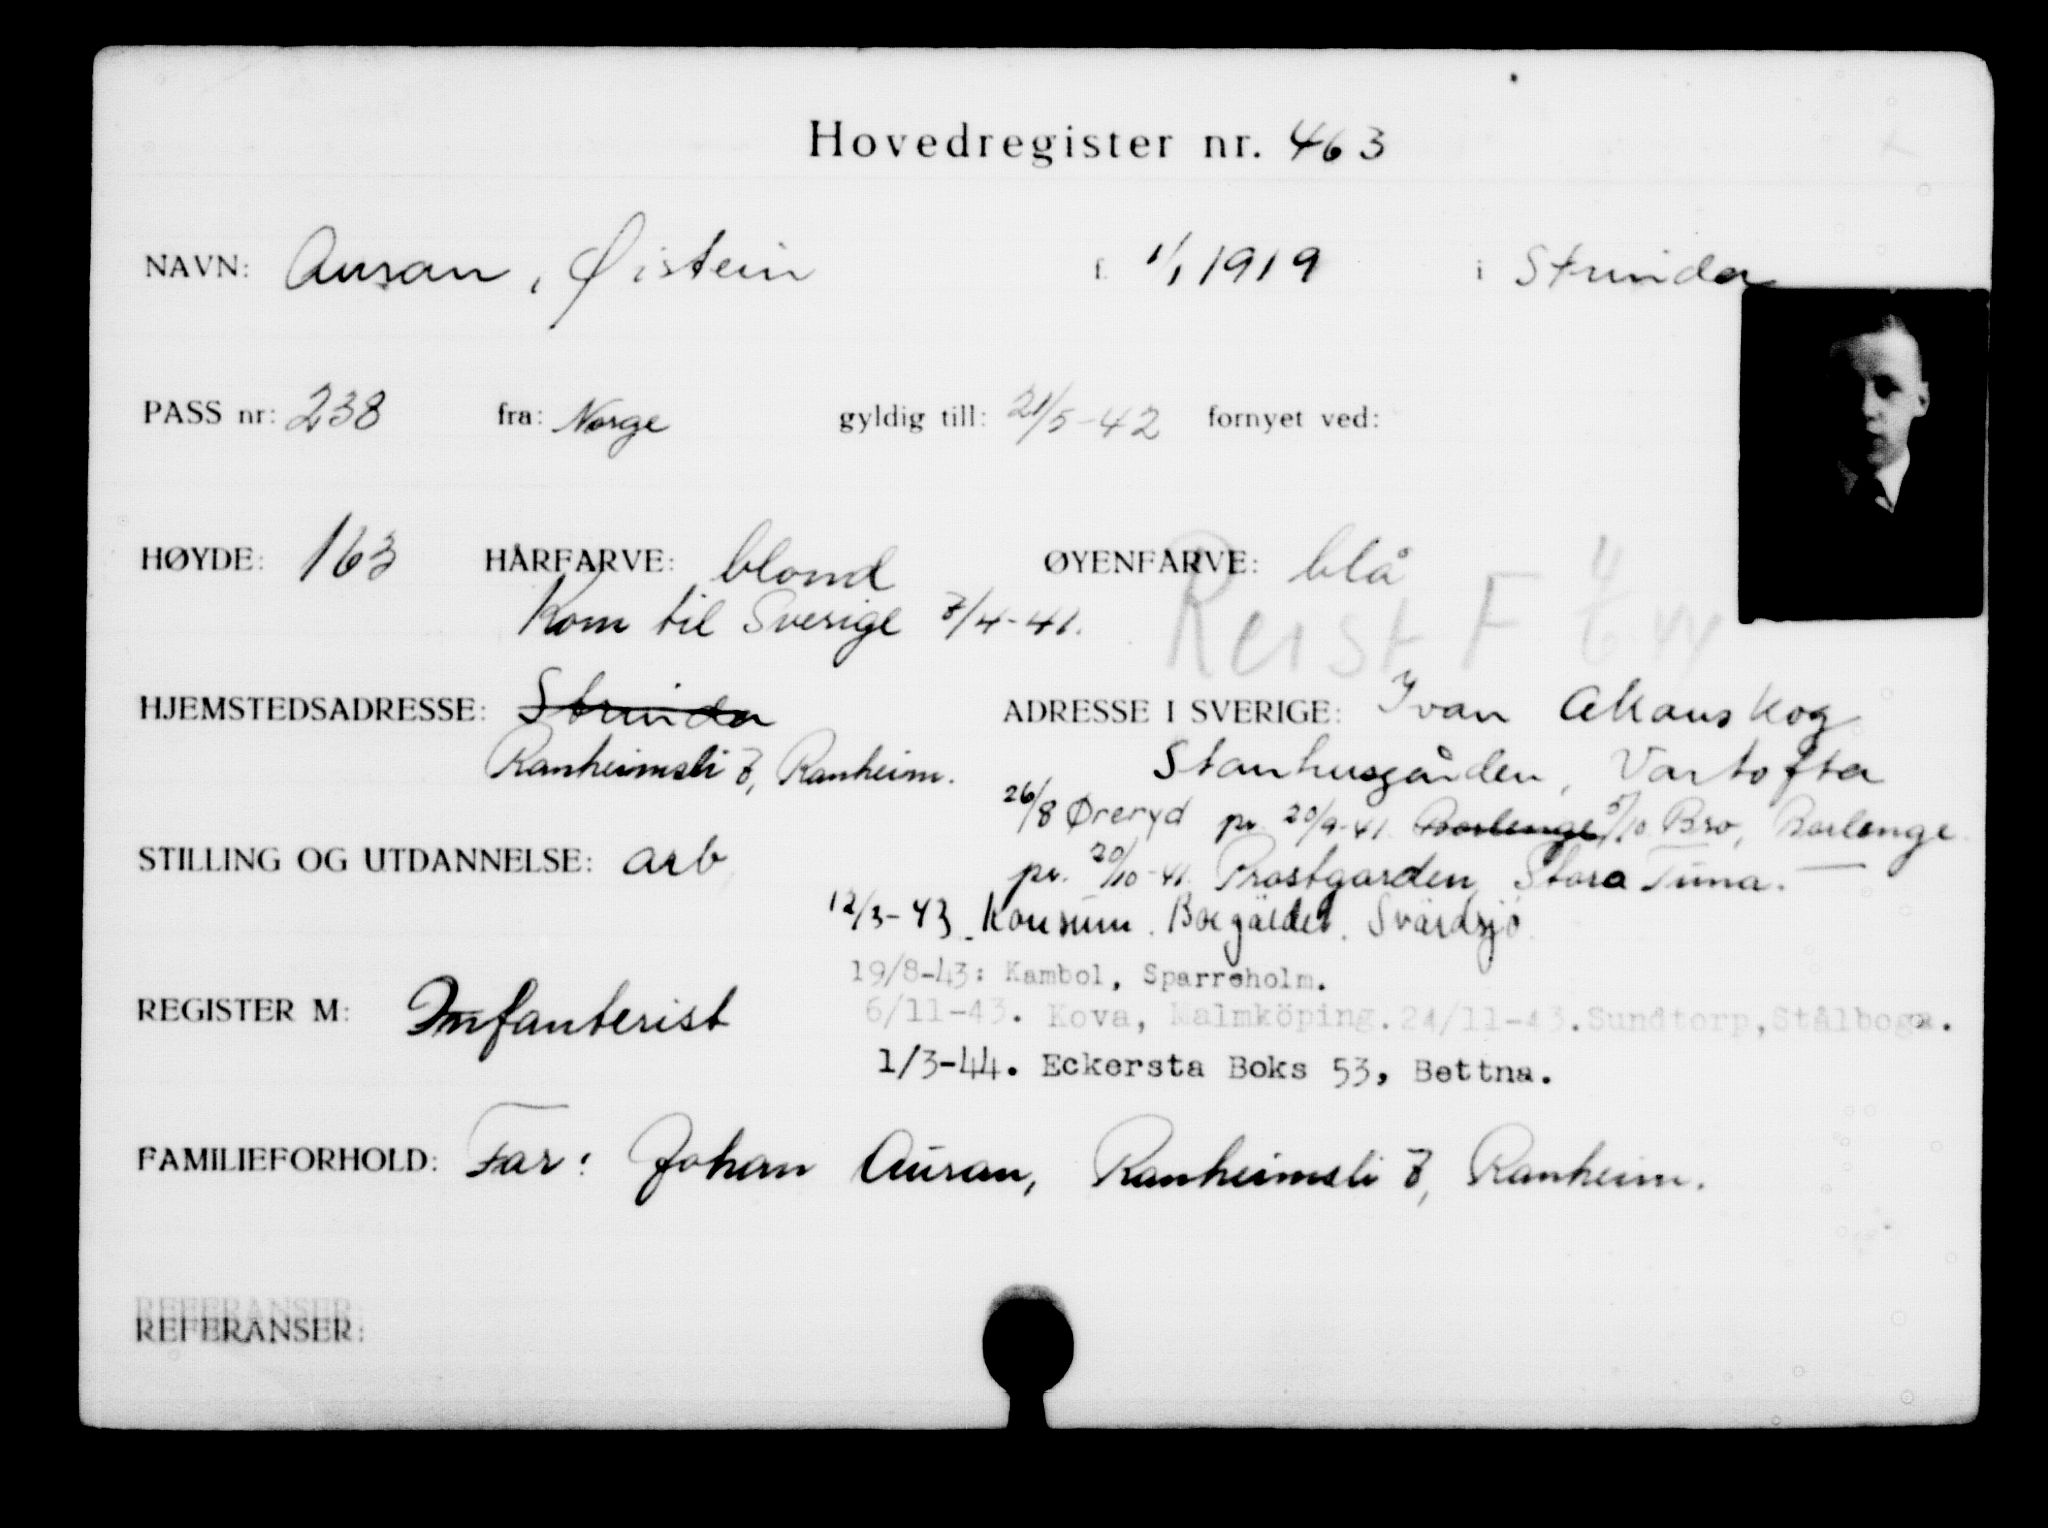 Hovedregister nr. 463
NAVN: Auran, Øistein f. 1/1 1919 i Strinda
PASS nr: 238 fra: Norge gyldig till: 21/5-42 fornyet ved:
HØYDE: 163 HÅRFARVE: blond ØYENFARVE: blå
Kom til Sverige 7/4-41.
Reist F 44
HJEMSTEDSADRESSE: Strinda ADRESSE I SVERIGE: Ivan
Ranheimsli 7, Ranheim. Stanhusgården, Vartofta
26/8 Øreryd pr. 20/9-41 Borlenge 5/10 Bro, Borlenge
STILLING OG UTDANNELSE: arb
pr. 20/10-41. Prostgarden, Stora Tuna.
12/3-43 Konsum. Svärdsjö
19/8-43: Kambol, Sparreholm.
REGISTER M: Infanterist
6/11-43. Kova, Malmköping. 24/11-43. Sundtorp, Stålboga.
1/3-44. Eckersta Boks 53, Bettna.
FAMILIEFORHOLD: Far: Johan Auran, Ranheimsli 7, Ranheim.
REFERANSER:
REFERANSER: